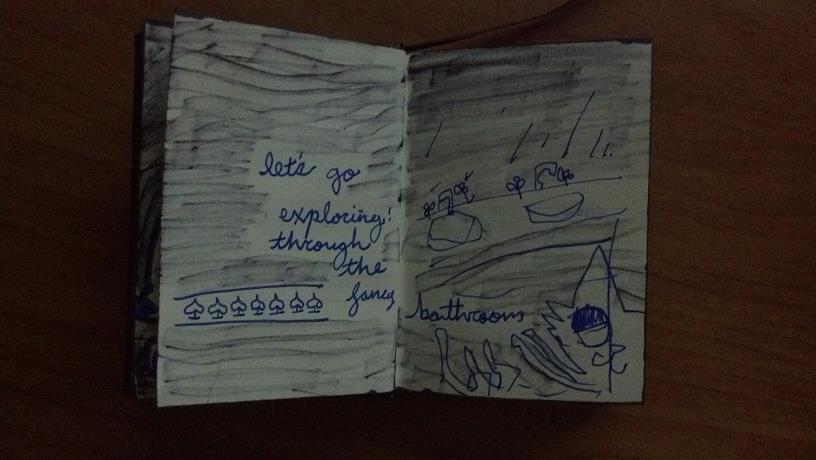 let's go
exploring!
through
the
fancy
bathrooms